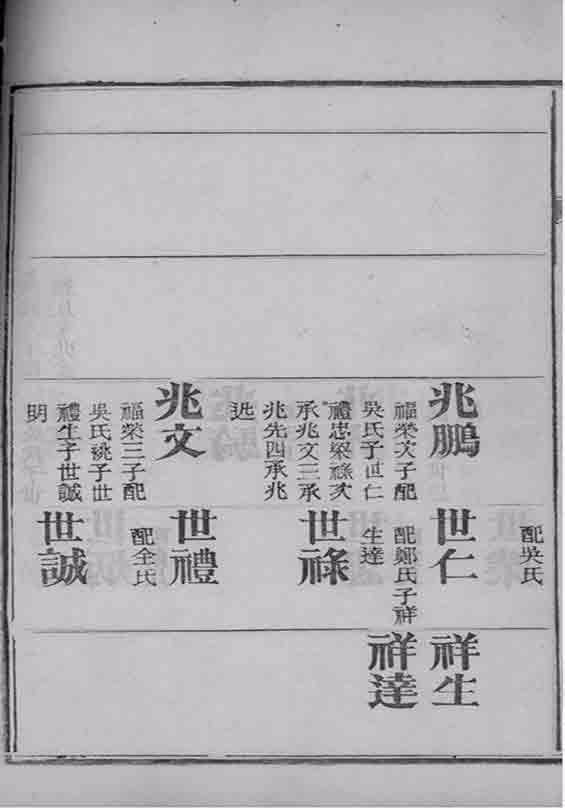 兆鵬
福榮次子配
吳氏子世仁
禮忠榮祿次
承兆文三承
兆先四承兆
兆文
福榮三子配
吳氏祧子世
禮生子世誠
明
配吳氏
世仁
配鄭氏子祥
生達
世祿
世禮
配全氏
世誠
祥生
祥達